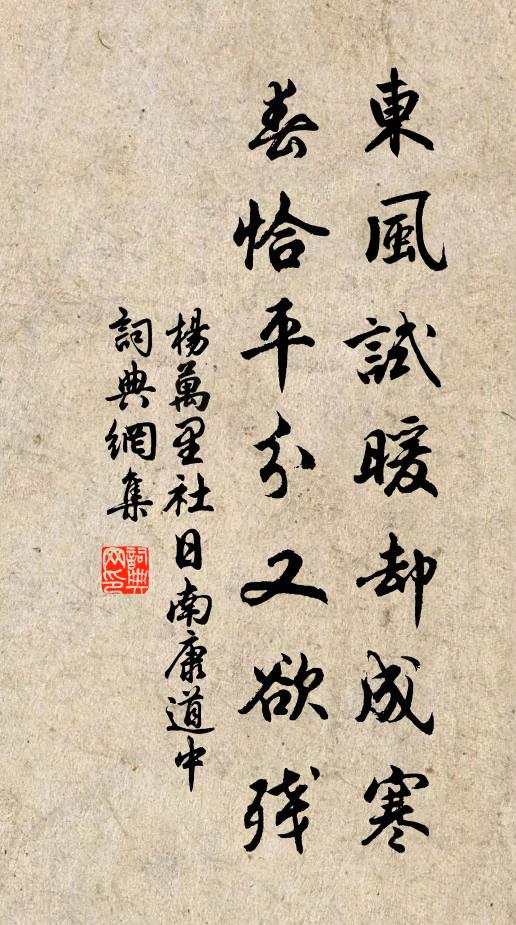 東風試暖却成寒
春恰平分又欲残
楊萬里社日南康道中
詞典網集
詞典網印